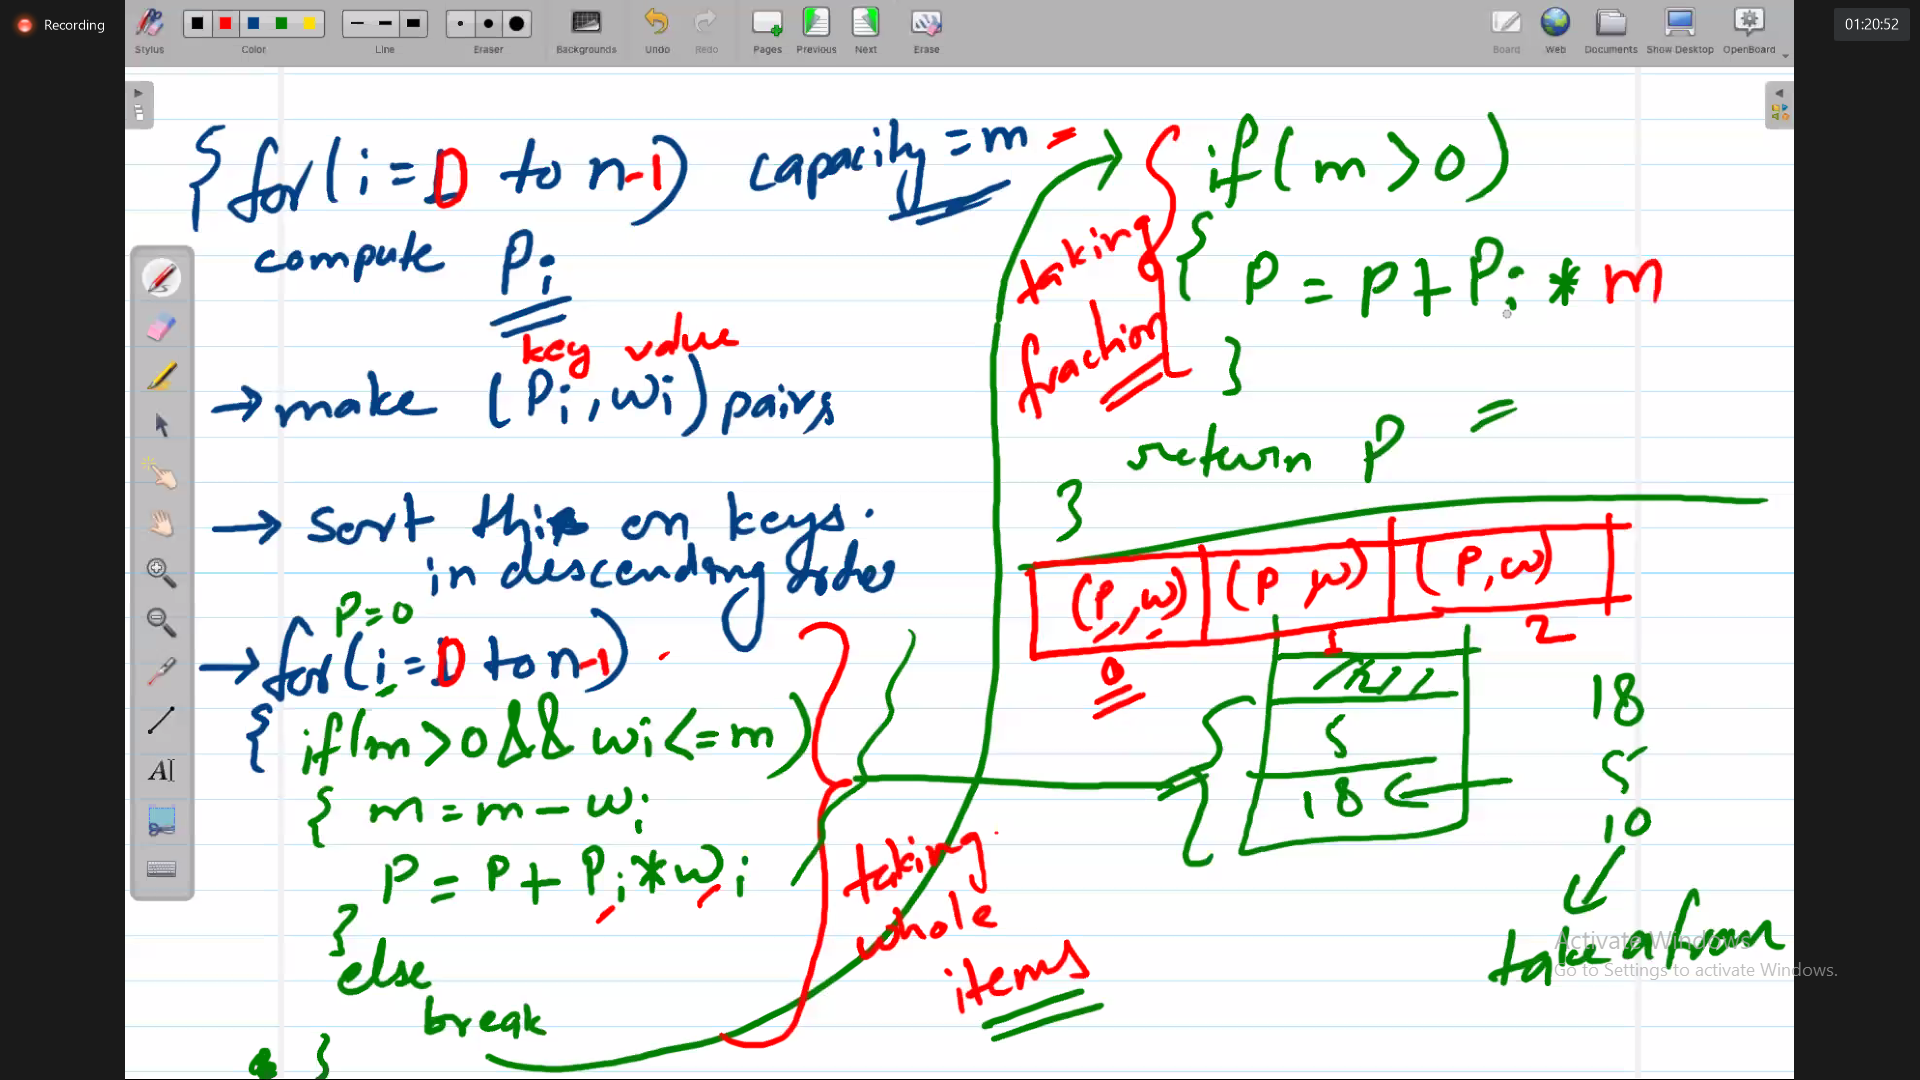 Recording
01:20:52
Stylus
Color
Line
Eraser
Backgrounds
Undo
Redo
Pages
Previous
Next
Erase
Board
Web
Documents
Show Desktop
OpenBoard
{ for(i = 0 to n-1) capacity = m
compute Pi
key value
→ make (Pi, wi) pairs
→ sort this on keys.
in descending order
P = 0
→ for(i = 0 to n-1)
{ if(m > 0 && wi <= m)
{ m = m - wi
P = P + Pi * wi
}
else
break
}
taking
whole
items
if(m > 0)
{ P = P + Pi * m
}
return P
}
taking
fraction
(P, w) (P, w) (P, w)
0 1 2
5
18
18
5
10
take a fran
Activate Windows
Go to Settings to activate Windows.